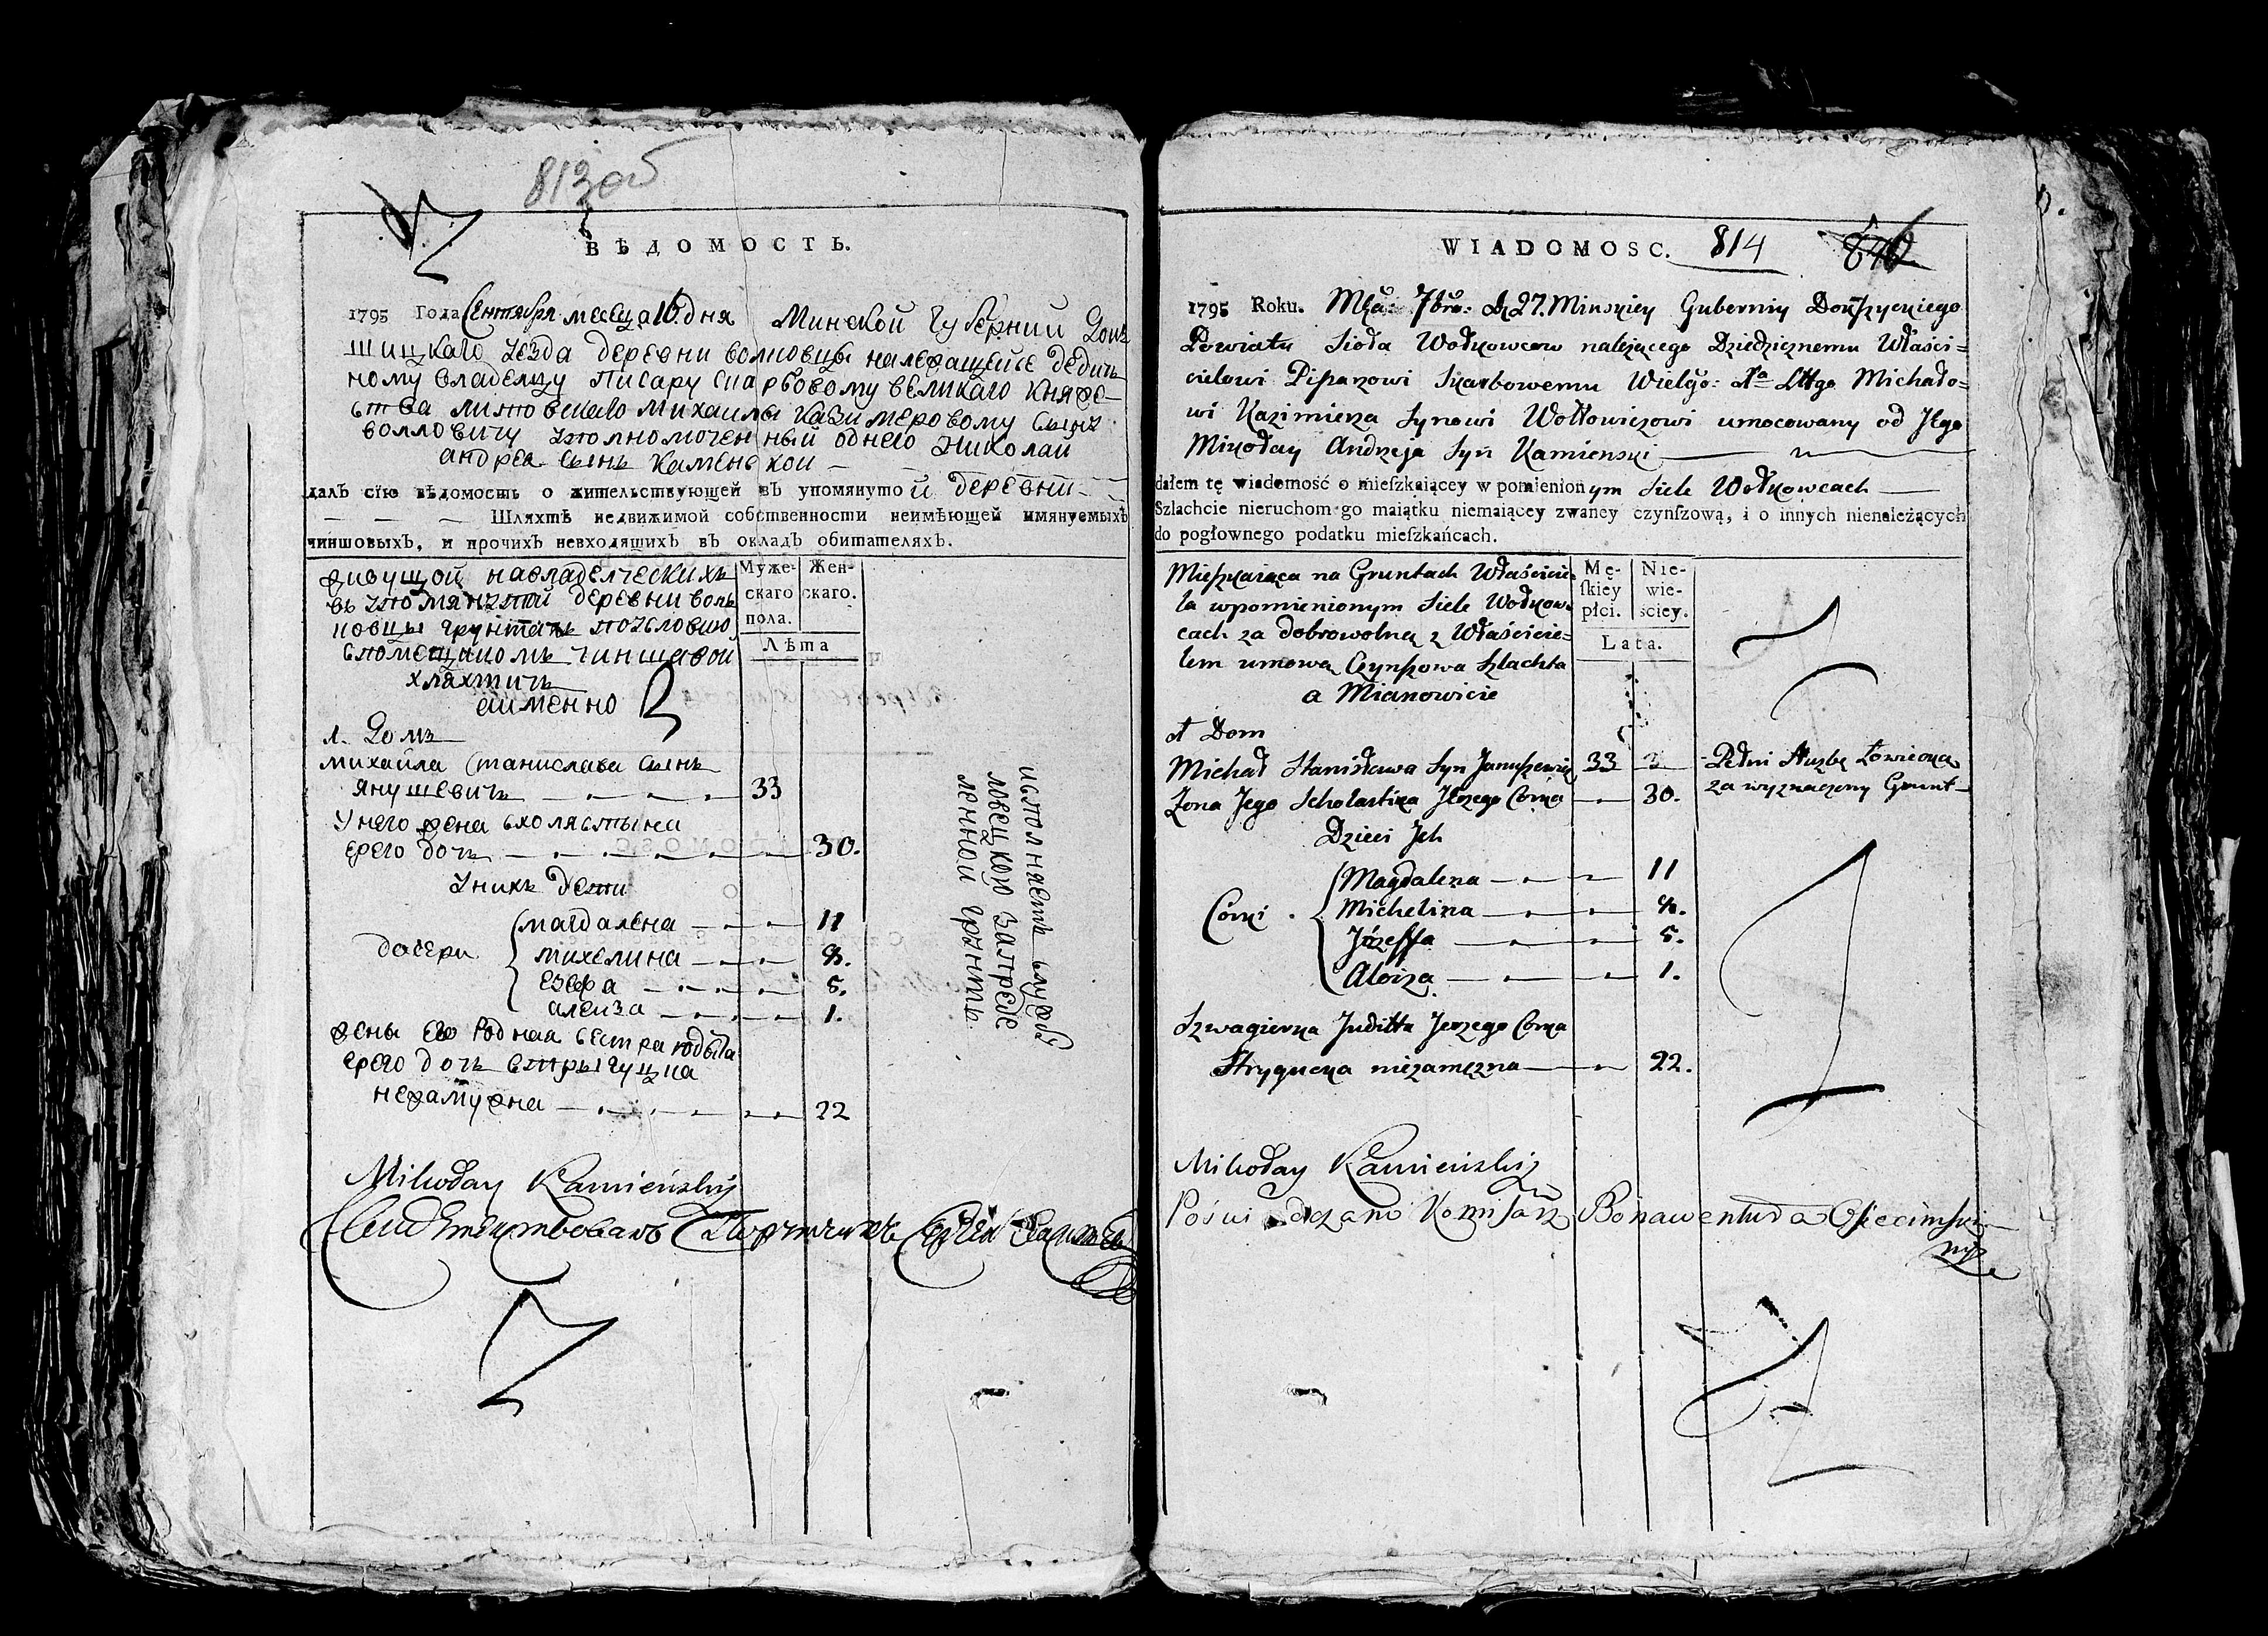 813 об
ВѢДОМОСТЬ.
1795 Года Сентебря месеца 16 дня Минской Губернии Док
шицкаго уезда деревни волковцы належащейсе дедич
ному владелцу писару скарбовому великаго княже
ства литовскаго михаилы казимеровому сыну
волловичу уполномоченный однего Николай
андрея сынъ каменской
далъ сїю вѣдомость о жительствующей въ упомянутой деревни
Шляхтѣ недвижимой собственности неимѣющей имянуемыхъ
чиншовыхъ, и прочихъ невходящихъ въ окладъ обитателяхъ.
живущой навладелческихъ
въ упомянутой деревни воль
ковцы грунтахъ поусловию
спомещикомъ чиншавой
хляхтичъ
аименно
Муже- Жен-
скаго скаго.
пола.
Лѣта
1. Домъ
михайла Станислава сынъ
янушевичъ 33
У него жена схолястыка
ержего дочъ 30.
Уникъ дети
дочери
магдалена 11
михелина 8.
езефа 5.
алоиза 1.
жены его родная сестра юдыта
ержего дочъ стрыгуцка
незамужна 22
исполняетъ службу
ловецкую запреде
ленной грунтъ.
Mikołay Kamieński
WIADOMOSC. 814
1795 Roku. Msca 7bra: d. 27. Minskiey Gubernij Dokszyckiego
Powiatu Sioła Wołkowcow należącego Dziedzicznemu Właści=
cielowi Pisarzowi Skarbowemu Wielgo: Xa Littgo Michało=
wi Kazimierza Synowi Wołłowiczowi umocowany od Jego
Mikołay Andrzeja Syn Kamienski
dałem tę wiadomość o mieſzkaiącey w pomienionym Siele Wołkowcach
Szlachcie nieruchomego maiątku niemaiącey zwaney czynſzową, i o innych nienależących
do pogłownego podatku mieſzkańcach.
Mieszkaiąca na Gruntach Właścicie-
la wpomienionym Siele Wołkow-
cach za dobrowolną z Właścicie=
lem umową Czynszowa Szlachta
a Mianowicie
Mę- Nie-
ſkiey wie-
płci. ściey.
Lata.
1 Dom
Michał Stanisława Syn Januszewicz 33 Pełni Służbę Łowiecką
Zona Jego Scholastika Jerzego Corka 30. za wyznaczony Grunt
Dzieci Jch
Córki
Magdalena 11
Michelina 8.
Józeffa 5.
Aloiza 1.
Szwagierka Juditta Jerzego Corka
Strygucka niezamężna 22.
Mikołay Kamieński
Poświadczano Komisarz Bonawentura